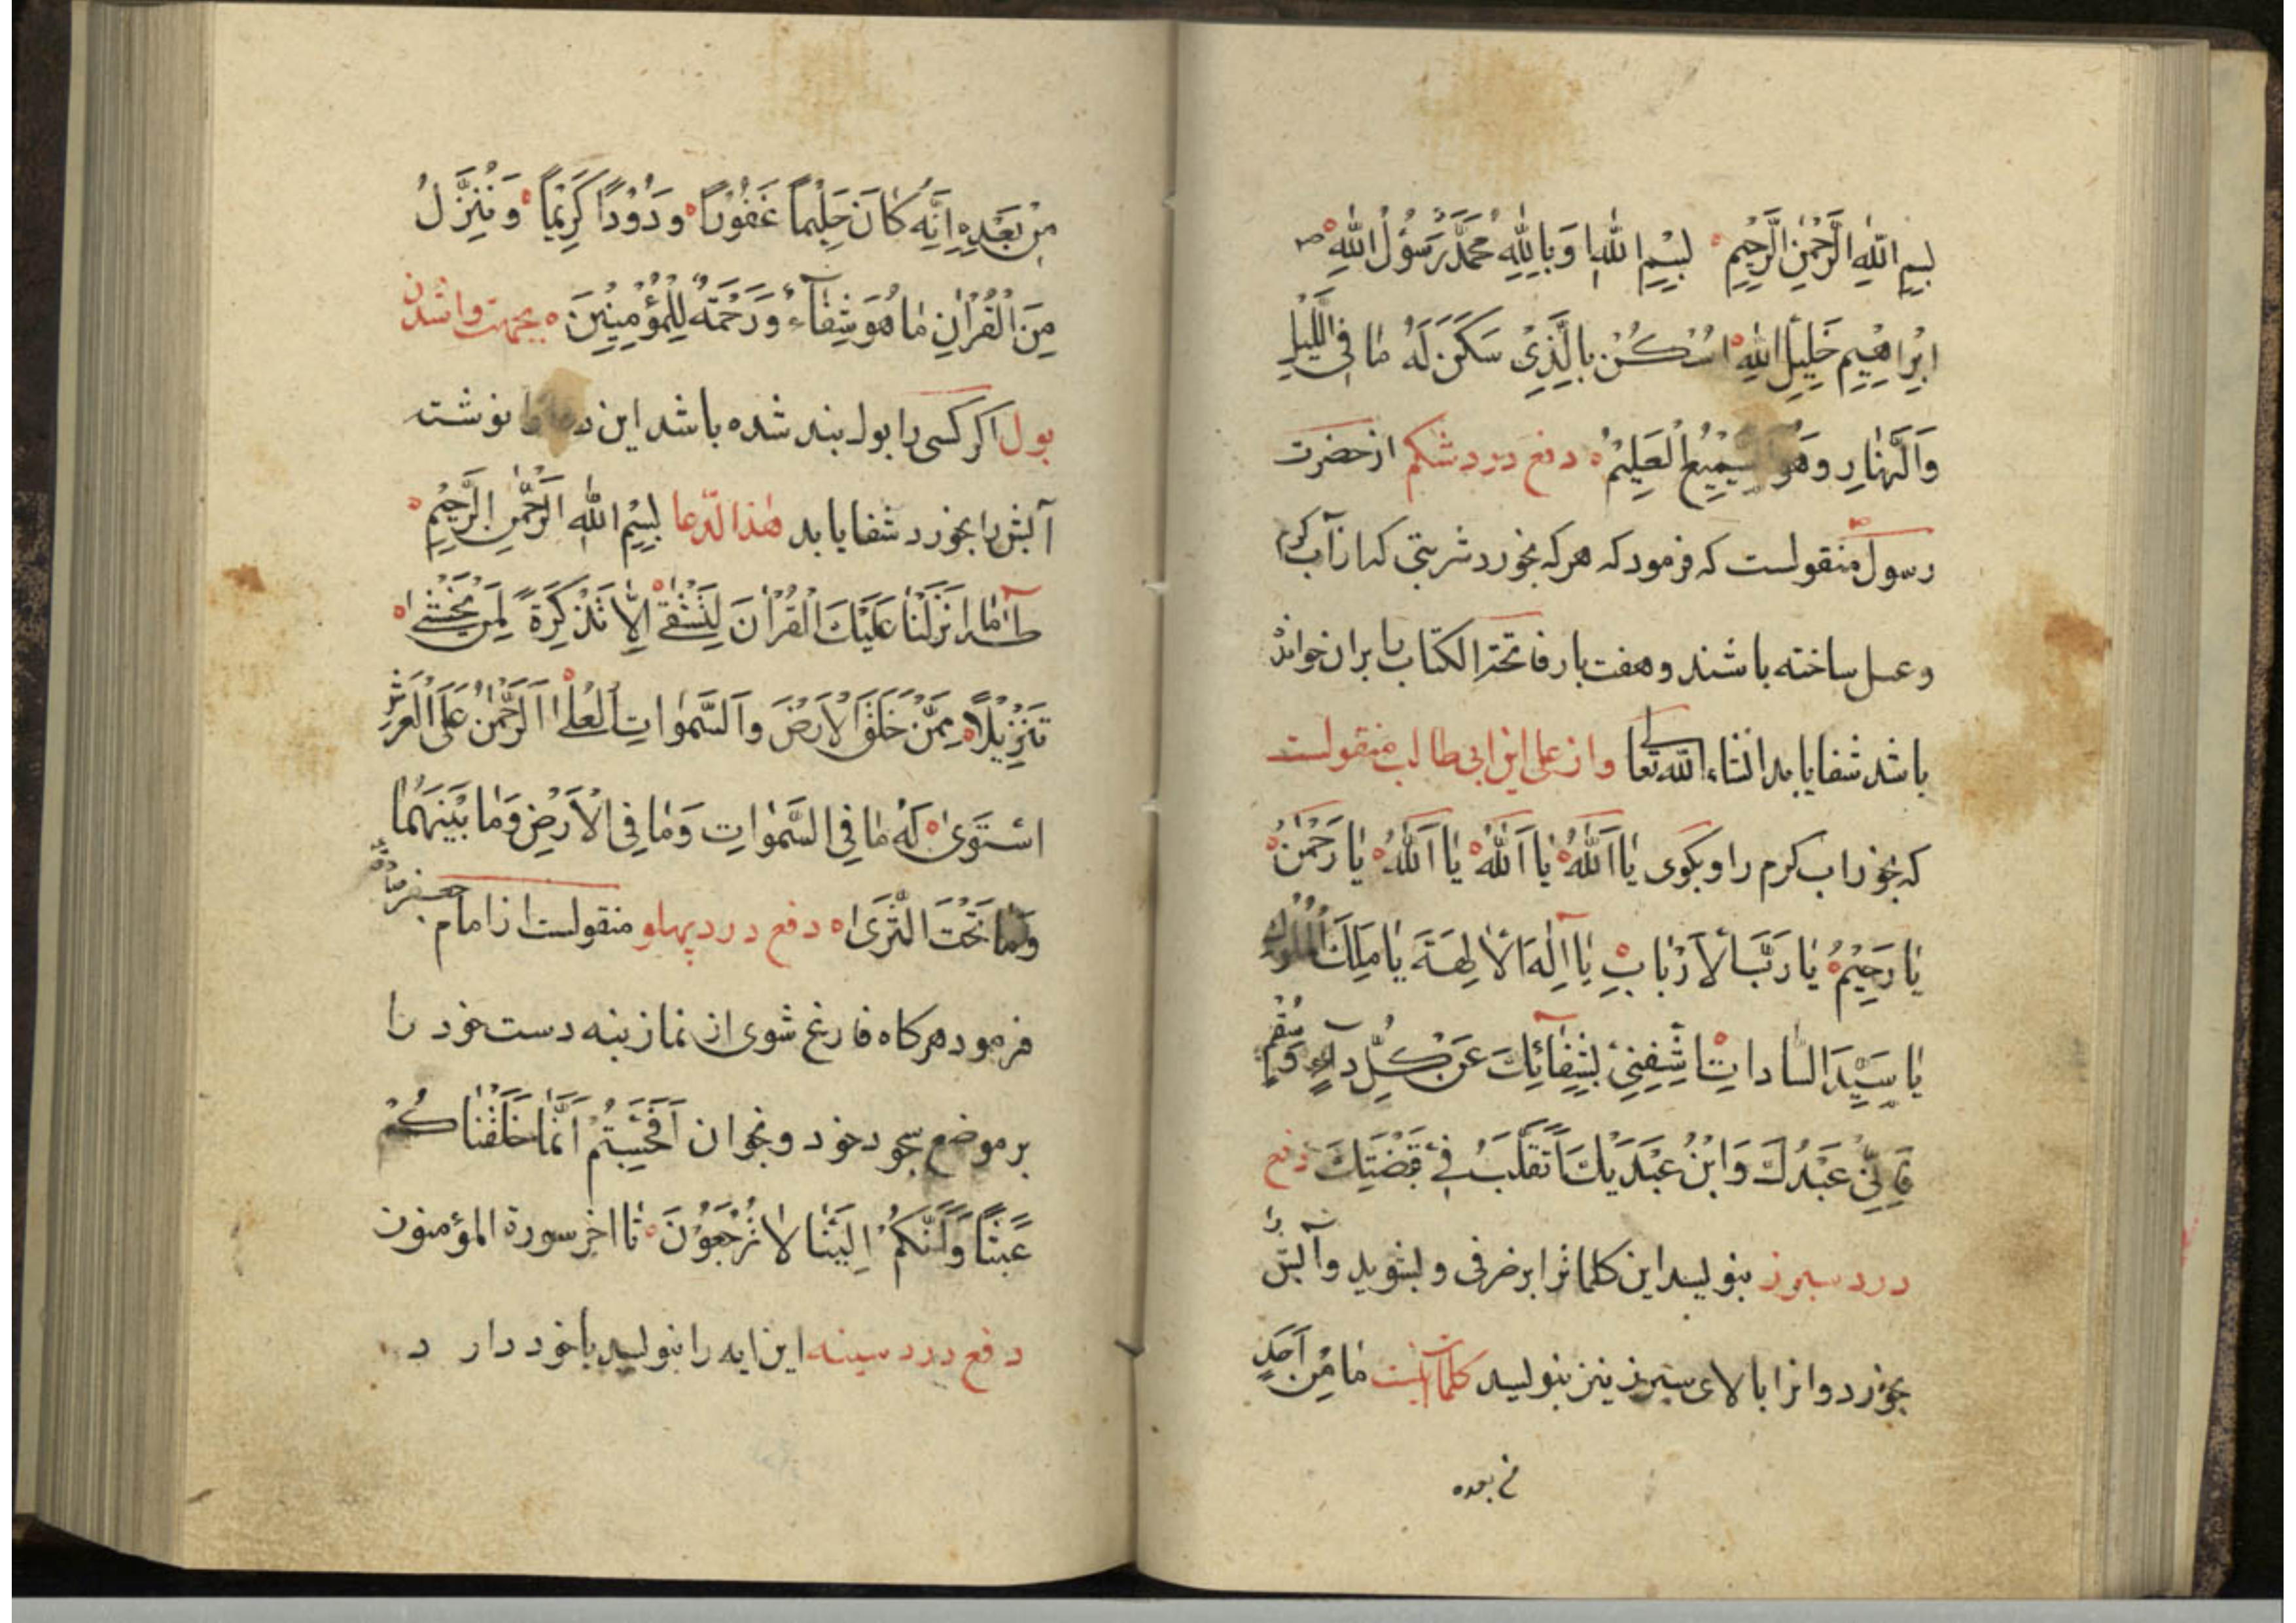 بِسْمِ اللّٰهِ الرَّحْمٰنِ الرَّحِيْمِ بِسْمِ اللّٰهِ وَبِاللّٰهِ مُحَمَّدٌ رَسُوْلُ اللّٰهِ ص
اِبْرَاهِيْمِ خَلِيْلِ اللّٰهِ اُسْكُنْ بِالَّذِيْ سَكَنَ لَهُ مَا فِي اللَّيْلِ
وَالنَّهَارِ وَهُوَ السَّمِيْعُ الْعَلِيْمُ دفع درد شکم از حضرت
رسول منقولست که فرمود که هرکه بخورد شربتی که از آب کرم
و عسل ساخته باشند و هفت بار فاتحة الکتاب را بران خوانده
باشد شفا یابد انشاء الله تعالی و از علی ابن ابی طالب منقولست
که بخور اب کرم را و بکوی يَا اَللّٰهُ يَا اَللّٰهُ يَا اَللّٰهُ يَا رَحْمٰنُ
يَا رَحِيْمُ يَا رَبَّ الْاَرْبَابِ يَا اِلٰهَ الْاٰلِهَةِ يَا مَلِكَ الْمُلُوْكِ
يَا سَيِّدَ السَّادَاتِ اشْفِنِيْ بِشِفَائِكَ عَنْ كُلِّ دَاءٍ وَسُقْمٍ
فَاِنِّيْ عَبْدُكَ وَابْنُ عَبْدَيْكَ اَتَقَلَّبُ فِيْ قَبْضَتِكَ دفع
درد سپرز بنویسد این کلمات را بر خرفی و بشوید و آبش را
بخورد و انرا بالای سپرز نیز بنویسد کلمات اینست مَا مِنْ اَحَدٍ
من بعده
مِنْ بَعْدِهِ اِنَّهُ كَانَ حَلِيْمًا غَفُوْرًا وَدُوْدًا كَرِيْمًا وَنُنَزِّلُ
مِنَ الْقُرْاٰنِ مَا هُوَ شِفَاءٌ وَرَحْمَةٌ لِلْمُؤْمِنِيْنَ بجهت واشدن
بول اکر کسی را بول بند شده باشد این دعا را نوشته
آبش را بخورد شفا یابد هذا الدّعا بِسْمِ اللّٰهِ الرَّحْمٰنِ الرَّحِيْمِ
طٰهٰ مَا اَنْزَلْنَا عَلَيْكَ الْقُرْاٰنَ لِتَشْقٰى اِلَّا تَذْكِرَةً لِمَنْ يَخْشٰى
تَنْزِيْلًا مِمَّنْ خَلَقَ الْاَرْضَ وَالسَّمٰوَاتِ الْعُلٰى اَلرَّحْمٰنُ عَلَى الْعَرْشِ
اسْتَوٰى لَهُ مَا فِي السَّمٰوَاتِ وَمَا فِي الْاَرْضِ وَمَا بَيْنَهُمَا
وَمَا تَحْتَ الثَّرٰى دفع درد پهلو منقولست از امام جعفر صادق
فرمود هرکاه فارغ شوی از نماز بنه دست خود را
بر موضع سجود خود و بخوان اَفَحَسِبْتُمْ اَنَّمَا خَلَقْنَاكُمْ
عَبَثًا وَاَنَّكُمْ اِلَيْنَا لَا تُرْجَعُوْنَ تا اخر سورة المؤمنون
دفع درد سینه این ایه را بنویسد با خود دارد